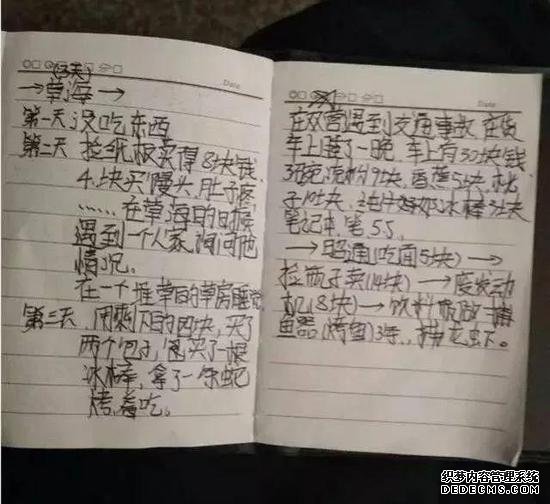 Date
(3天)
→草海→
第一天没吃东西
第二天 捡纸板卖得8块钱
4块买馒头,肚子疼
……在草海的时候
遇到一个人家,询问他
情况。
在一个堆草的草房睡觉
第三天,用剩下的四块,买了
两个包子,包买了一根
冰棒,拿了一条蛇
烤着吃。
Date
在双营遇到交通事故,在货
车上睡了一晚,车上有30块钱
3碗泡粉9块,香蕉5块,桃
子10块,冰棒3块
笔记本,笔5.5
→昭通(吃面5块)→
捡瓶子卖(14块)→废发动
机(8块)→饮料瓶做捕
鱼器(烤鱼)3条,龙虾。
织梦内容管理系统
DEDECMS.COM